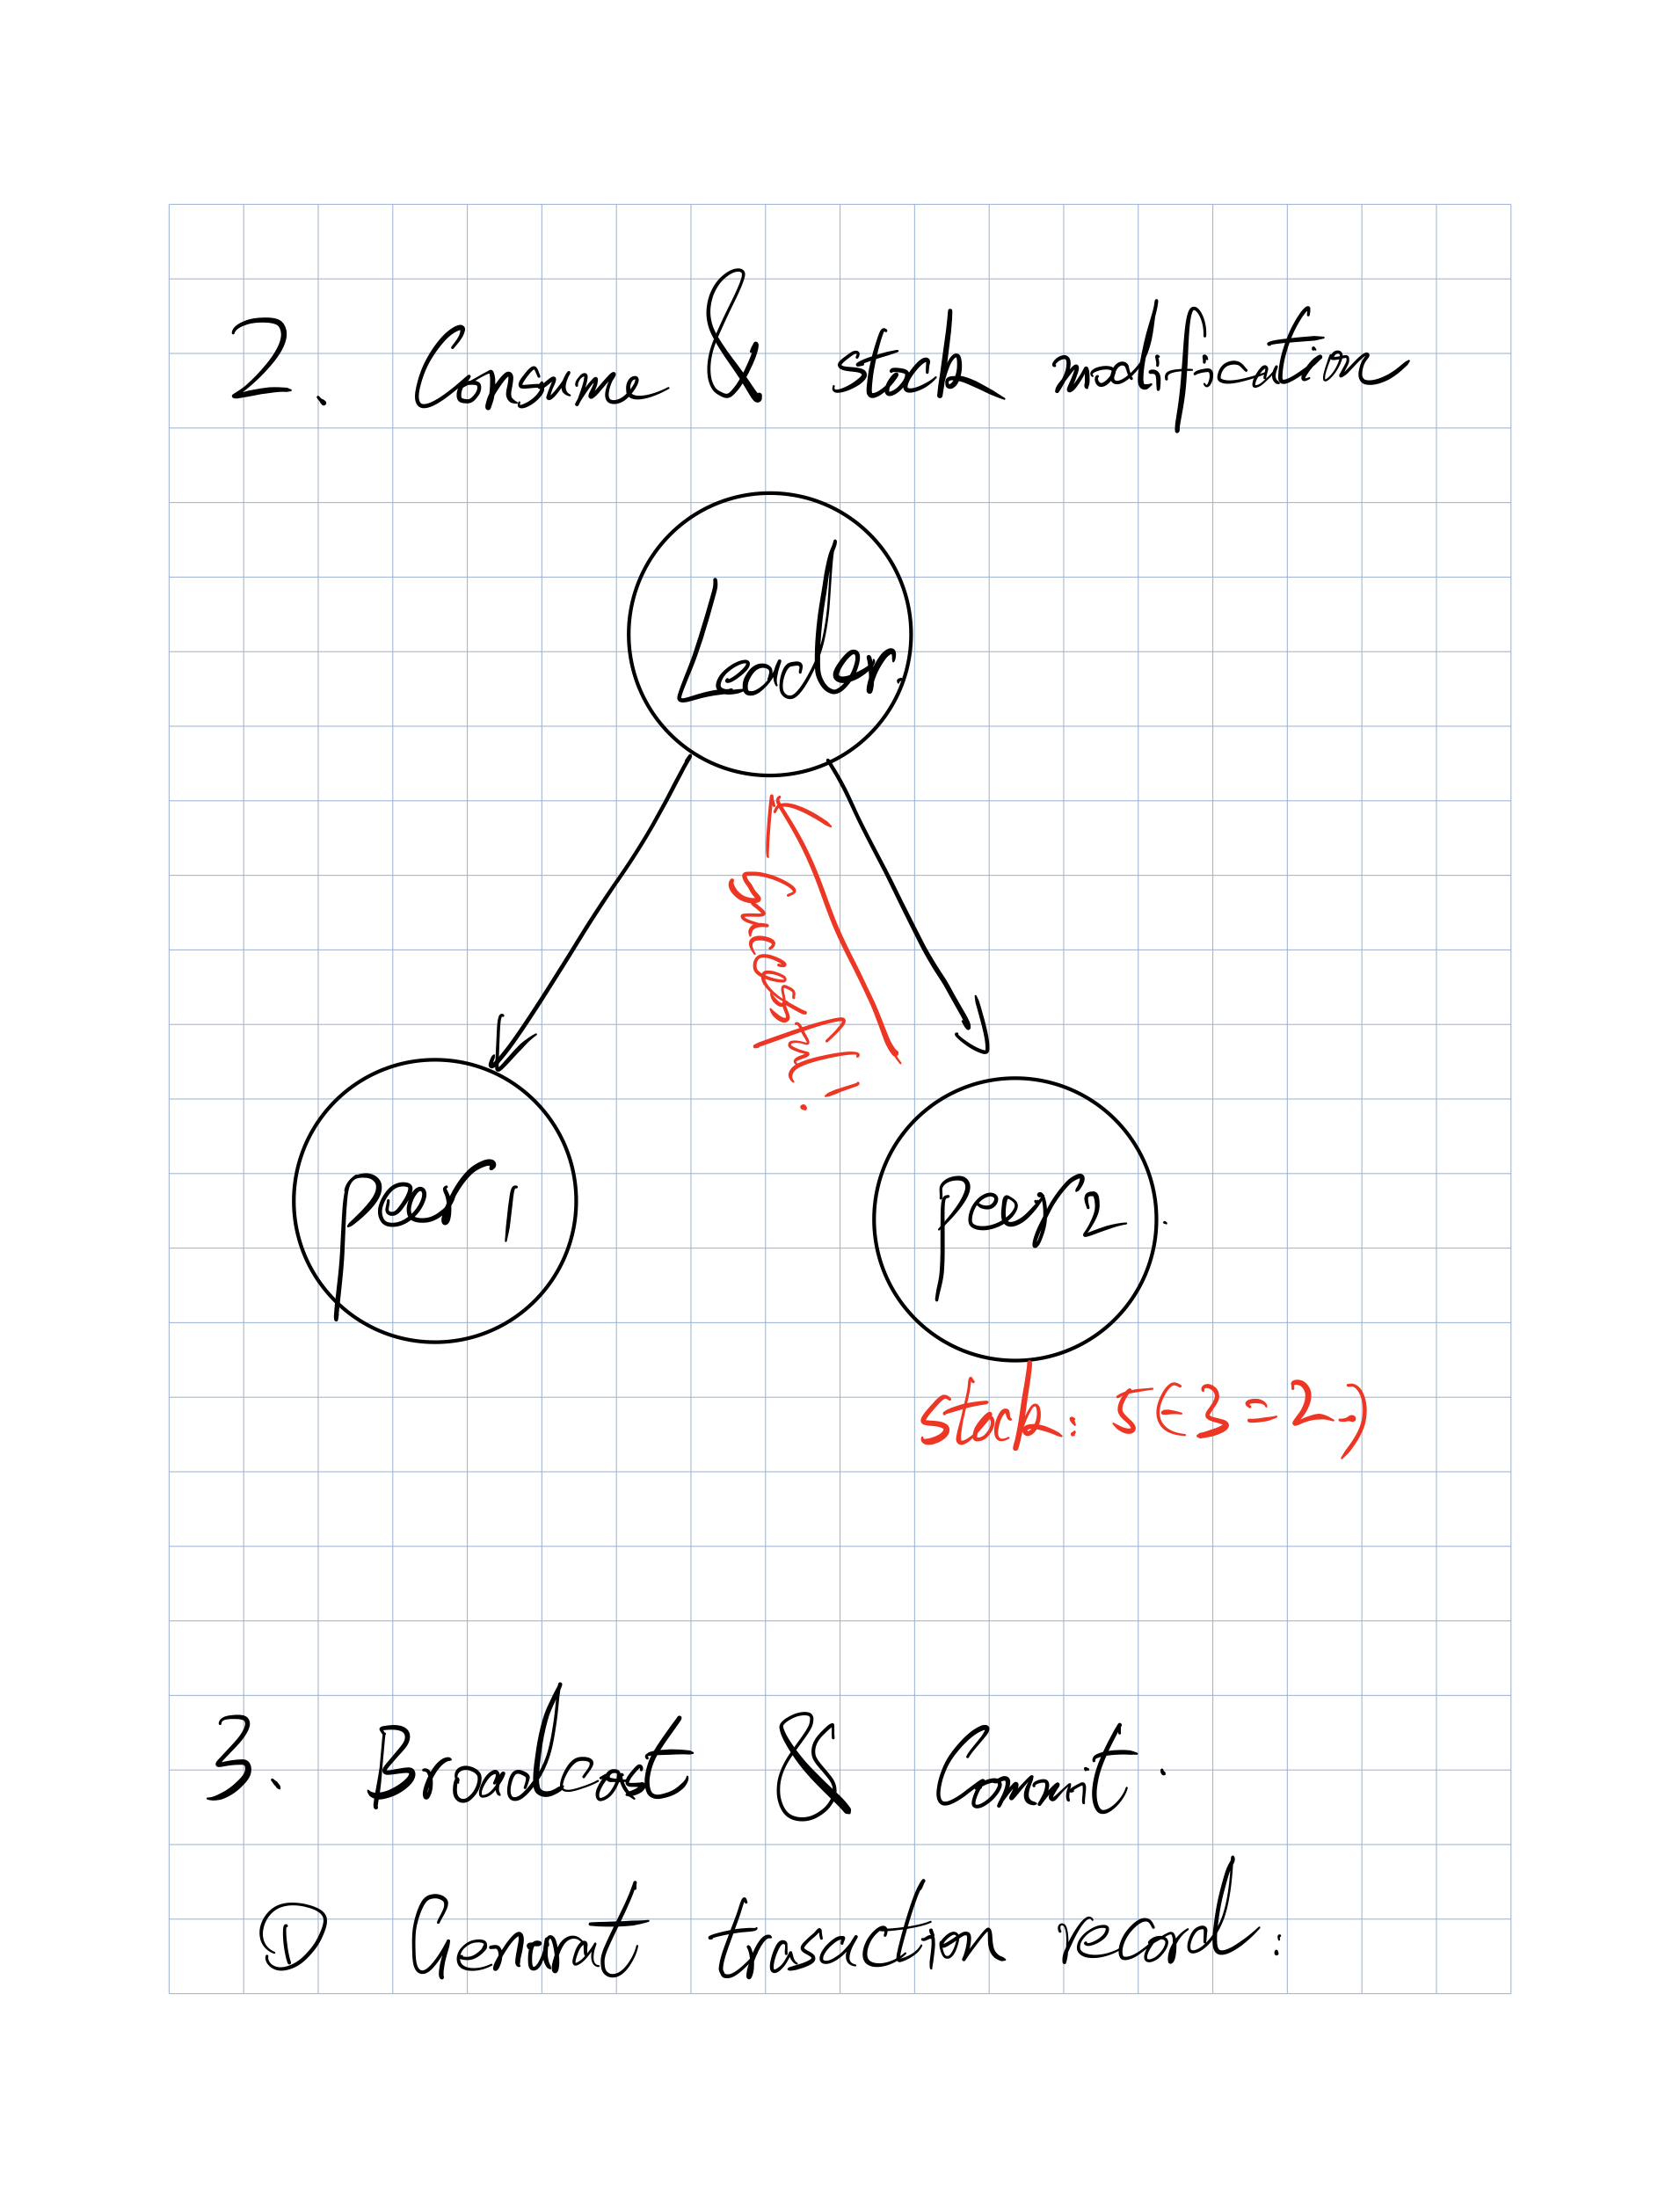 2. Consume & stock modification
Leader.
Successful!
peer 1
peer 2.
stock: 5(-3=2)
3. Broadcast & Commit.
① Generate transaction record: